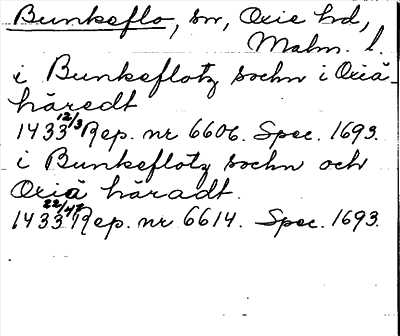 Bunkeflo, sn, Oxie hd,
Malm. l.
i Bunkeflotz sochn i Oxiä
häredt
1433 12/3 Rep. nr 6606. Spec. 1693.
i Bunkeflotz sochn och
Oxiä häradt.
1433 Rep. nr 6614. Spec. 1693.